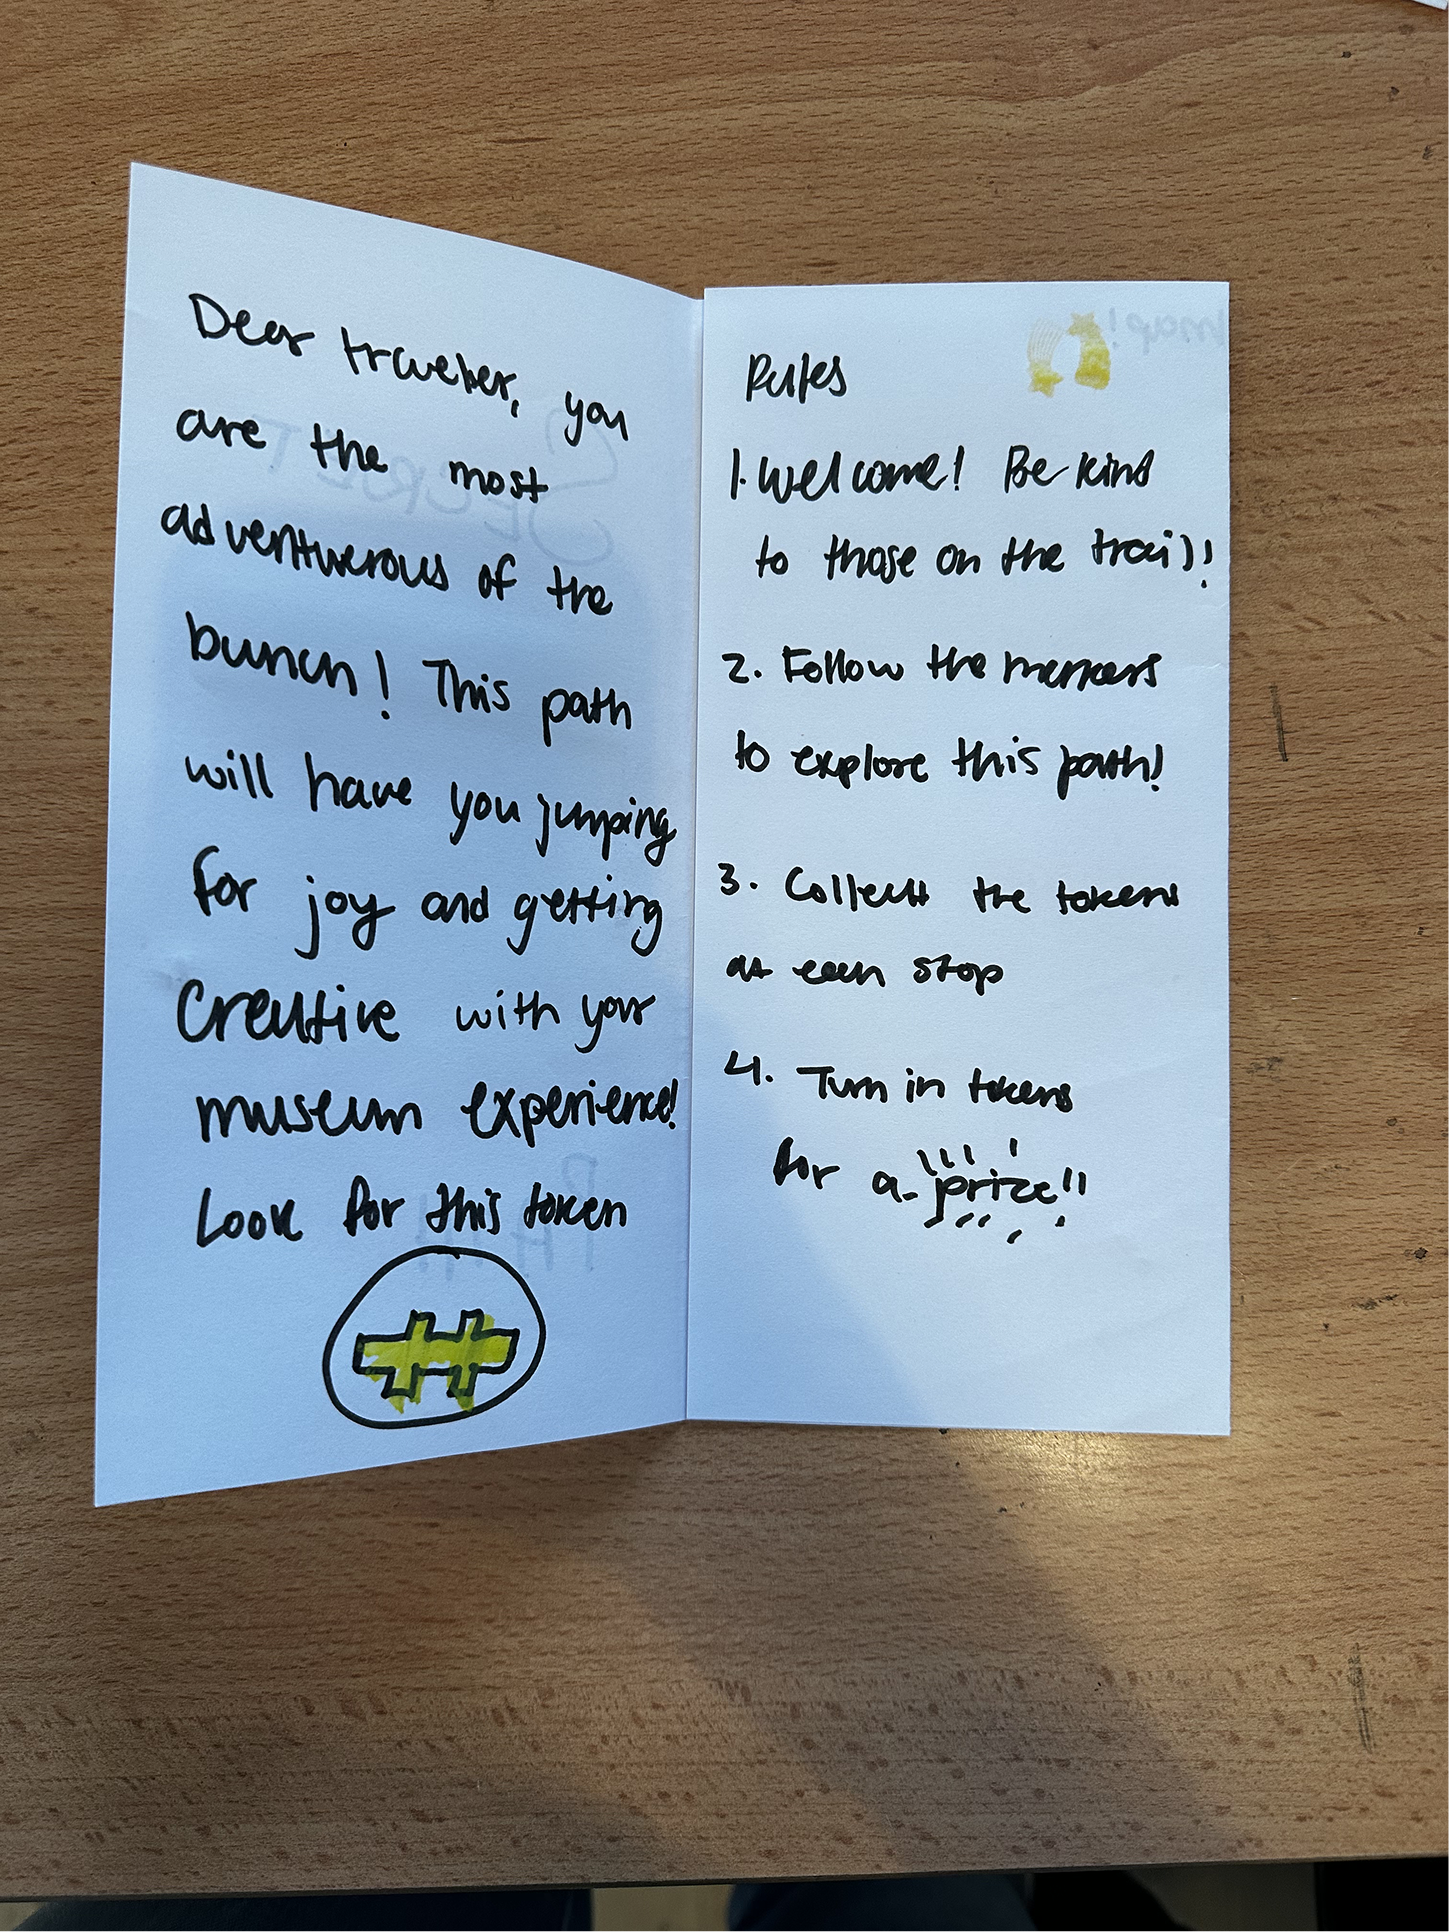 Dear traveler, you
are the most
adventurerous of the
bunch! This path
will have you jumping
for joy and getting
creative with your
museum experience!
Look for this token
Rules
1. Welcome! Be kind
to those on the trail!
2. Follow the markers
to explore this path!
3. Collect the tokens
at each stop
4. Turn in tokens
for a prize!!
map!
SECRET
PATH